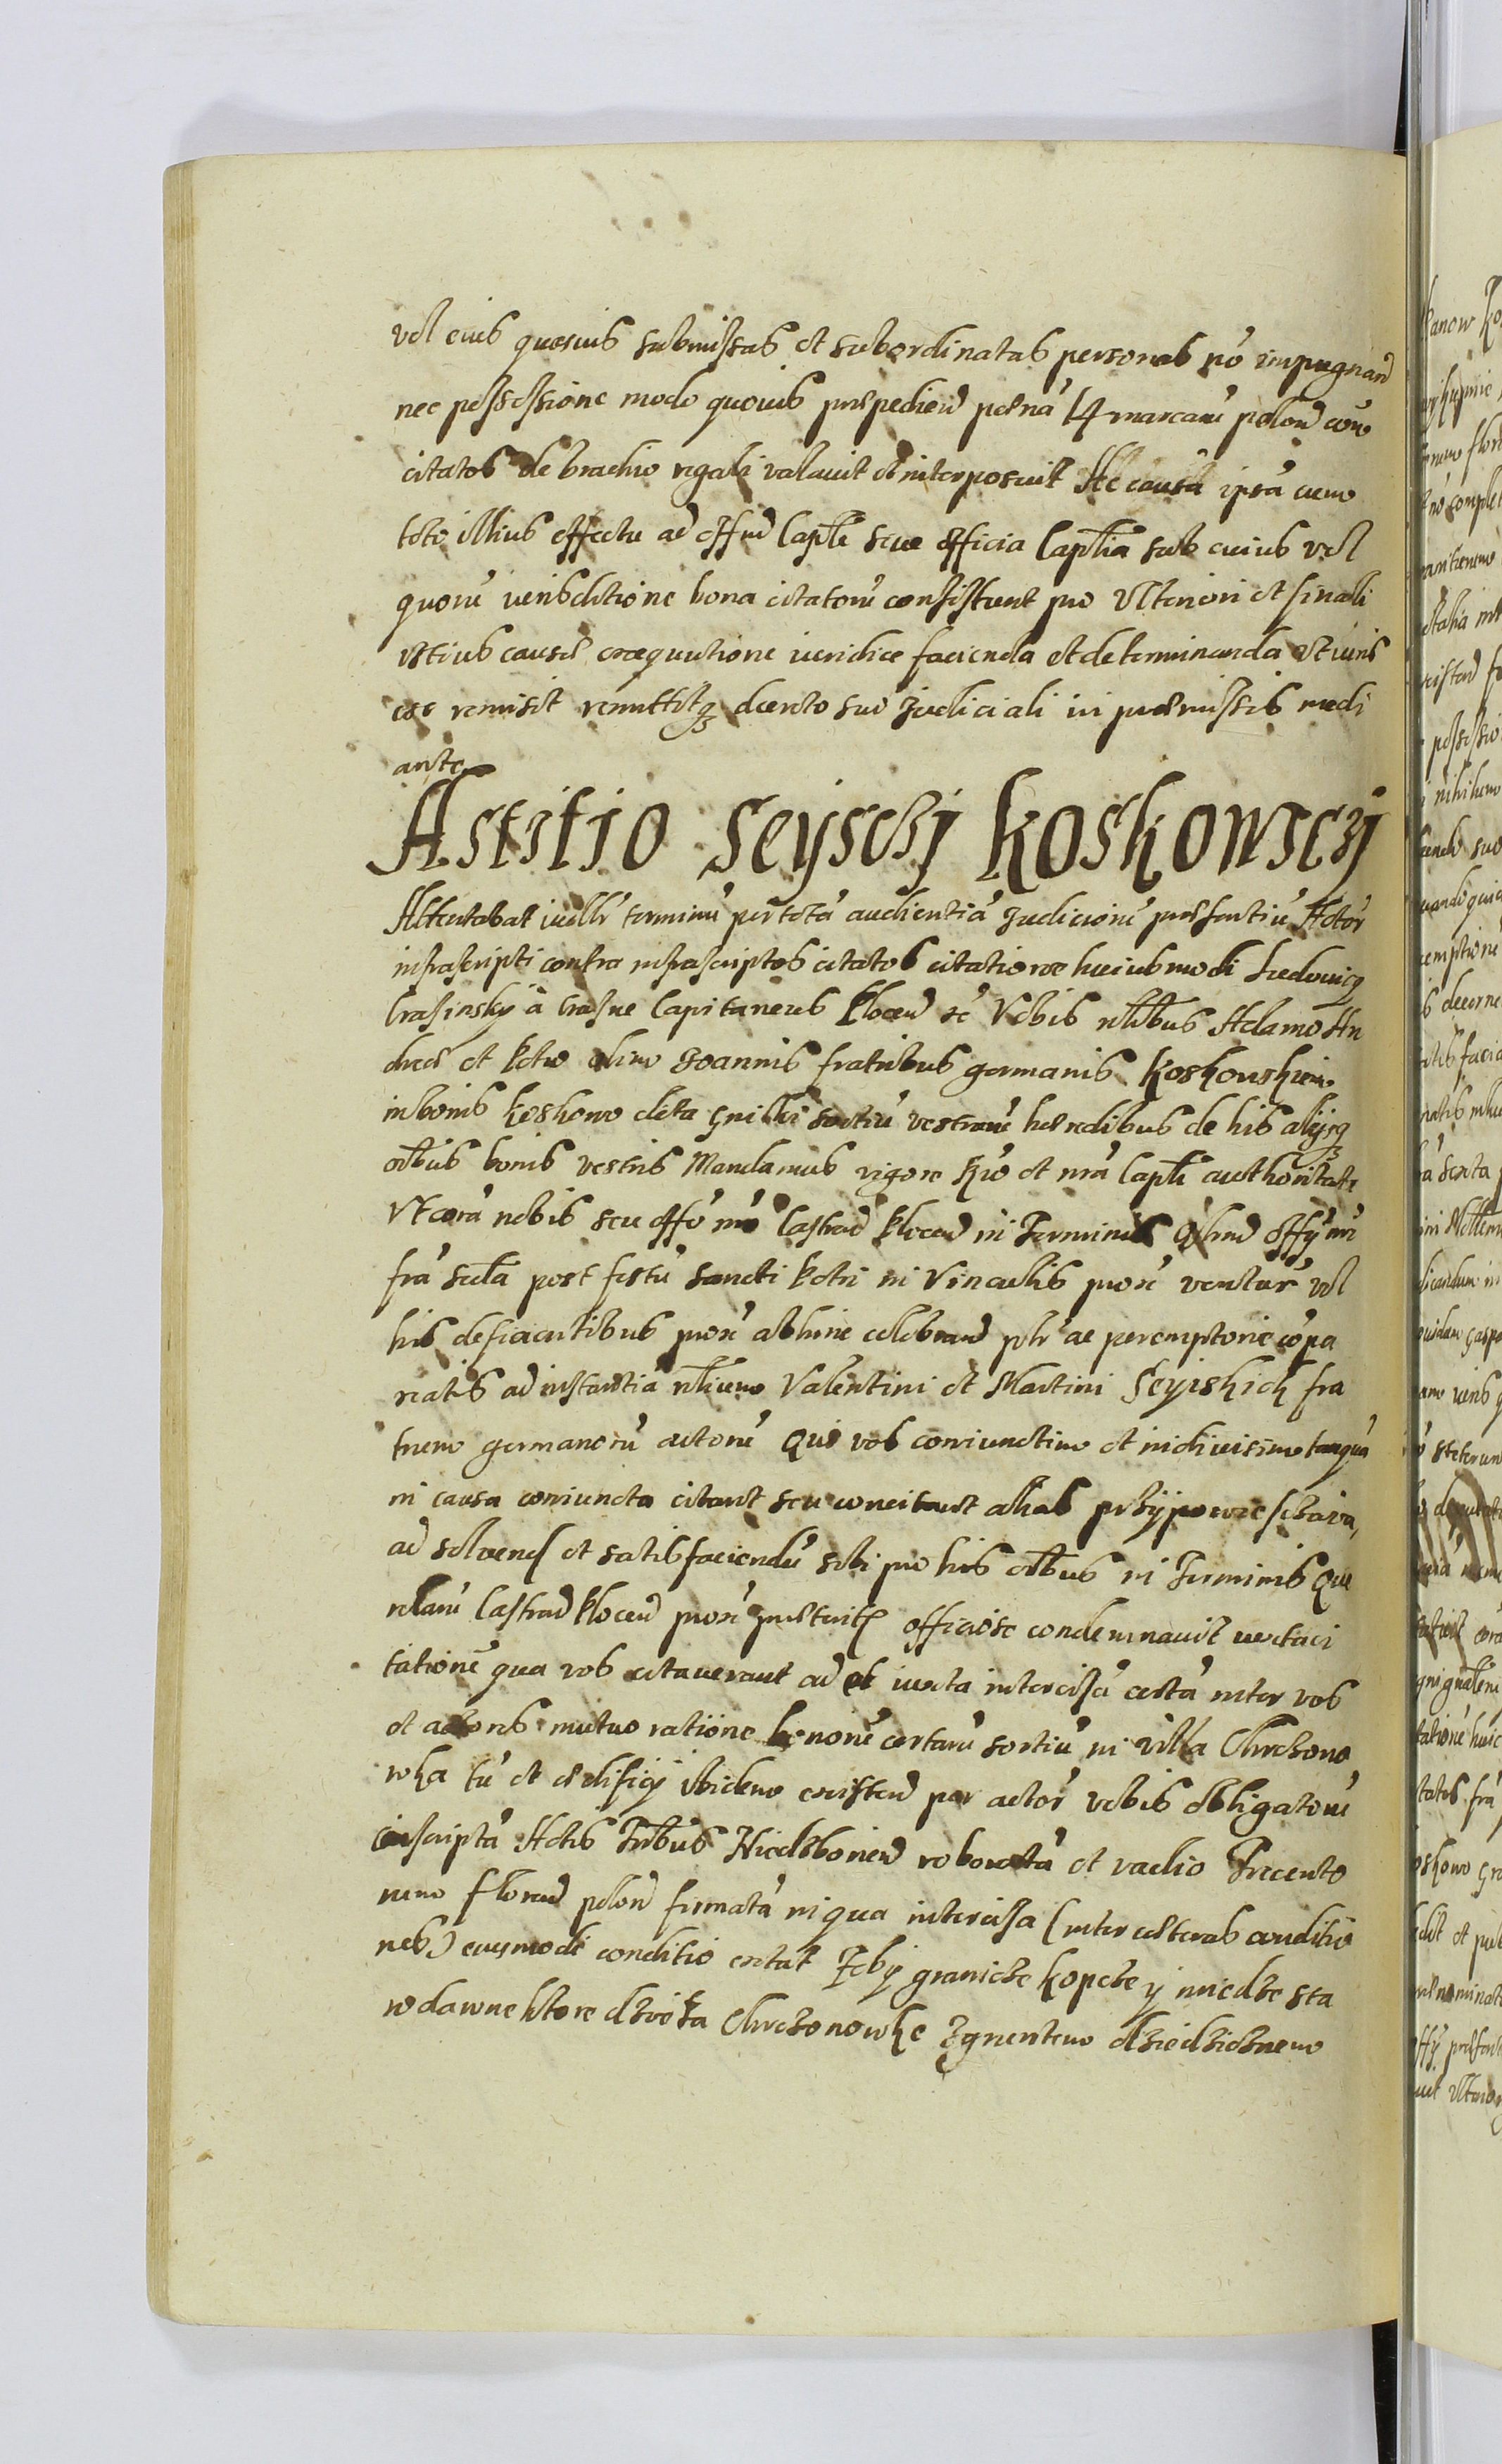 vel eius quosuis submissas et subordinatas personas nō impugnand
nec possessione modo quouis praepediend poenā 14 marcarū polon con
citatos de brachio regali valauit et interposuit Ac causā ipsā cum
toto illius effectu ad offm Captle seu officia Captlia sub cuius vel
quorū iurisditione bona citatorū consistunt pro vlteriori et finali
istius causae exequutione iuridice facienda et determinanda vt iuris
est remisit remittitq decreto suo Judiciali in praemissis medi
ante
Astitio Seyschi Koskowsczi
Attentabat terminū per totā audientiā Judiciorū praesentiū Actor
infrascripti contra infrascriptos citatos citatione huiusmodi Ludouicq
Crasinsky a Crasne Capitaneus Plocen &c Vobis nlibus Adamo An
dreae et Petro olim Joannis fratribus germanis Koskowskiem
in bonis Koskowo dicta sortiū vestrarū haeredibus de his alijsq
oibus bonis vestris Mandamus rigore et nrā Captli authoritate
Vt corā nobis seu offō nrō Castren Plocen in Terminis Offy nri
fra scda post festū Sancti Petri in Vinculis prox ventur vel
his deficientibus prox abhinc celebrand pltr ac peremptorie cōpa
reatis ad instantiā nlium Valentini et Martini Seyiskich fra
trum germanorū actorū Qui vos coniunctim et indiuisim tanquā
in causa coniuncta citant seu concitant alias przypowiesczaia,
ad soluend et satisfaciendū sibi pro his oibus in Terminis Que
relarū Castren Plocen prox praeterit officiose condemnauit iuxta ci
tationē qua vos citauerant ad et iuxta intercisā certā inter vos
et actores mutuo ratione bonorū certarū sortiū in villa Chrczono
wka tū et aedificy ibidem existen per actor vobis obligatorū
conscriptā Actis Tribus Niedzborien roboratā et vadio Trecento
rum floren polon firmatā in qua intercisa (inter caeteras conditio
nes) eiusmodi conditio extat Zeby granicze kopcze y miedze sta
rodawne ktore dzielą Chrczonowke Zgruntem dziedzicznem